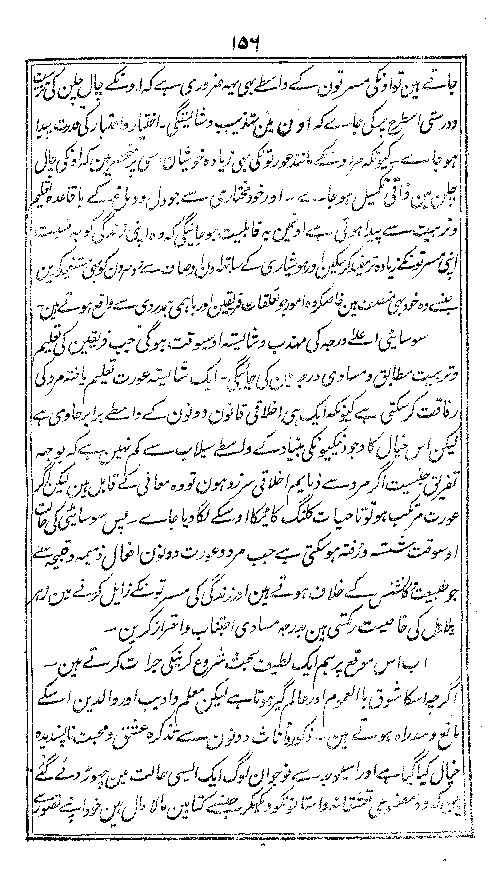 ۱۵۶
جاتے ہین تو اونکی مسرتون کے واسطے بھی یہہ ضروری ہے کہ اونکے چال چلن کی
ودرستی اسطرح پر کی جاے کہ اون مین تہذیب وشایستگی۔ اختیار واعتبار کی قدرت پیدا
ہو جاے۔ کیونکہ مردونکے مانند عورتونکی بھی زیادہ خوشیان اسی پر منحصر ہین کہ اونکی چال
چلن مین ذاتی تکمیل ہو جاے۔ اور خود مختاری سے جو دل و دماغ کے باقاعدہ تعلیم
وتربیت سے پیدا ہوتی ہے اونمین یہ قابلیت ہو جائیگی کہ وہ اپنی زندگی کو
اپنی مسرتونکے زیادہ کرسکین اور ہوشیاری کے ساتھ اون اوصاف سے دوسرون کو بھی مستفید کرین
جنسے وہ خود بھی ہین خاصکر وہ امور جو تعلقات فریقین اور باہمی ہمدردی سے واقع ہوتے ہین۔
سوسایٹی اعلے درجہ کی مہذب وشایستہ اوسوقت ہو گی جب فریقین کی تعلیم
وتربیت مطابق و مساوی درجہ مین کی جائیگی۔ ایک شایستہ عورت تعلیم یافتہ مرد کی
رفاقت کرسکتی ہے کیونکہ ایک ہی اخلاقی قانون دونون کے واسطے برابر حاوی ہے
لیکن اس خیال کا وجود نیکیونکی بنیاد کے واسطے سیلاب سے کم نہین ہے کہ بوجہ
تفریق جنسیت اگر مرد سے ذمایم اخلاقی سرزد ہون تو وہ معافی کے قابل ہین لیکن اگر
عورت مرتکب ہو تو تا حیات کلنک کا ٹیکا اوسکے لگا دیا جاے۔ پس سوسایٹی کی حالت
اوسوقت شستہ و رفتہ ہو سکتی ہے جب مرد و عورت دونون افعال ذمیمہ و قبیحہ سے
جو طبیعت کانشنس کے خلاف ہوتے ہین اور زندگی کی مسرتونکے زایل کرنے مین زہر
ہلاہل کی خاصیت رکھتی ہین بدرجہ مساوی اجتناب و احتراز کرین۔
اب اس موقع پر ہم ایک لطیف بحث شروع کرنیکی جرات کرتے ہین۔
اگرچہ اسکا شوق بالعموم اور عالمگیر ہوتا ہے لیکن معلم و ادیب اور والدین اسکے
مانع و سدراہ ہوتے ہین۔ ذکور و اناث دونون سے تذکرہ عشق و محبت ناپسندیدہ
خیال کیا گیا ہے اور اسیوجہ سے نوجوان لوگ ایک ایسی حالت مین چھوڑ دئے گئے
ہین کہ وہ مصنوعی عشقانہ داستانونکو دیکھکر جنسے کتابین مالا مال ہین خود اپنے تصور سے